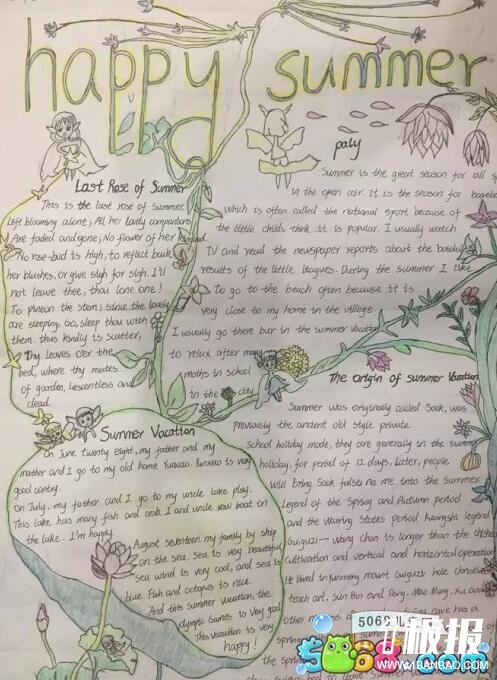 happy summer
Last Rose of Summer
This is the last rose of summer.
Left blooming alone; All her lovely companions
Are faded and gone; No flower of her kindred.
No rose-bud is high, to reflect back
her blushes, or give sigh for sigh. I'll
not leave thee, thou lone one!
To pineon the stem; since the lovely
are sleeping. Go, sleep thou with
them. thus kindly is scatter,
Thy leaves O'er the
bed, where thy mates
of garden, Lescentless and
dead.
Summer Vacation
On June twenty eight, my father and my
mather and I go to my old home Yunxiao. Yunxiao is very
good contry.
on July. my father and I go to my uncle lake play.
This lake has many fish and crab. I and uncle row boat on
the lake. I'm happy.
August seventeen my family by ship
on the sea. Sea is very beautiful
sea wind is very cool, and sea is
blue. Fish and octopus is nice.
And this summer vacation, the
olympic Games is very good
This vacation is very
happy!
paly
Summer is the great season for all s
in the open air It is the season for baseba
which is often called the national sport because of
the little childs think it is popular. I usually watch
TV and read the newspaper reports about the baseba
results of the little leagues. During the summer I like
To go to the beach often because it is
very close to my home in the villege
I usually go there bur in the summer Vacatio
to relux after many
moths in school
in the city
The origin of summer Vacation
Summer was originally called Sook, was
previously the ancient old style private
School holiday mode, they are generally in the summ
holiday, for period of 12 days. Later, people
Will bring Sook false na me into the summer
Legend of the Spring and Autumn period
and the Warring States period Kuangshi legend
Guiguzi— Wang Chan is longer than the chishu
cultivation and vertical and horizontal operation
He lived in Yunmeng mount Guiguzi hole
teach art, Sun Bin and Pang, Mao Mang, Xu and
Other cave has a
the spring
the spring
had to leave Summer
5068儿
极报
5068.com
www.1BANBAO.COM